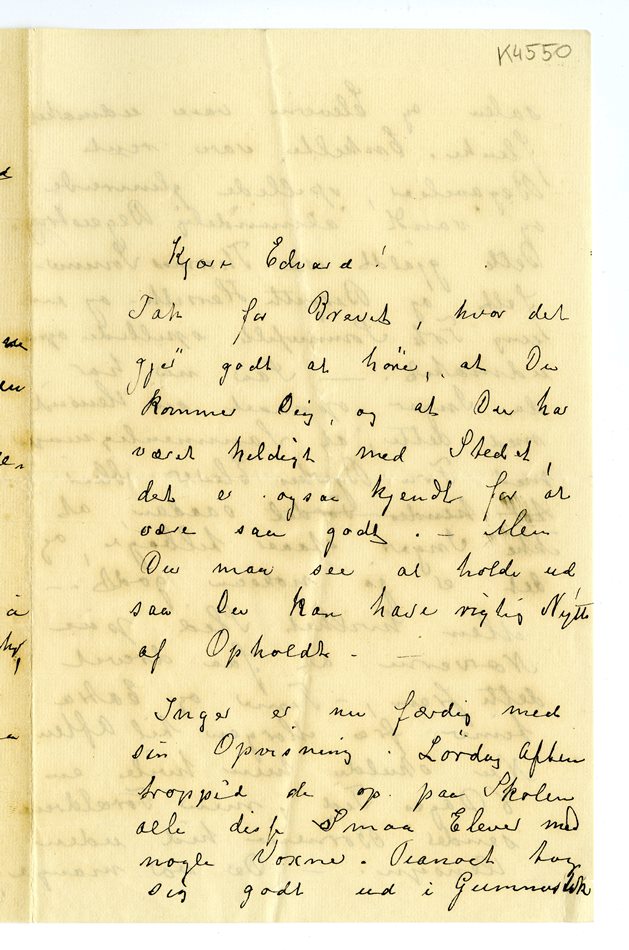 K4550
Kjære Edvard!
Tak for Brevet, hvor det
gjør godt at höre, at Du
kommer Dig, og at Du har
været heldigt med Stedet,
det er ogsaa kjendt for at
være saa godt. — Men
Du maa see at holde ud,
saa Du kan have rigtig Nytte
af Opholdt. —
Inger er nu færdig med
sin Opvisning. Lördag Aften
troppéd de op paa Skolen
alle disse Smaa Elever med
nogle Voxne. Pianoet tog
sig godt ud i Gymnastik